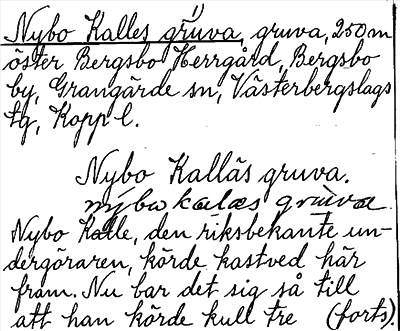 Nybo Kalles gruva, gruva, 250 m
öster Bergsbo Herrgård, Bergsbo
by, Grangärde sn, Västerbergslags
tg, Kopp l.
Nybo Kalläs gruva.
nybo kalas gruva
Nybo Kalle, den riksbekante un-
dergöraren, körde kastved här
fram. Nu bar det sig så till
att han körde kull tre (forts).